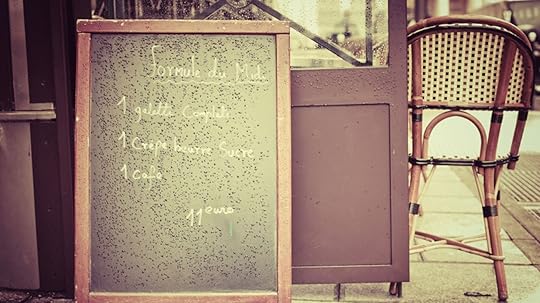 Formule du Midi
1 galette Complète
1 Crêpe beurre Sucre
1 Café
11 euro